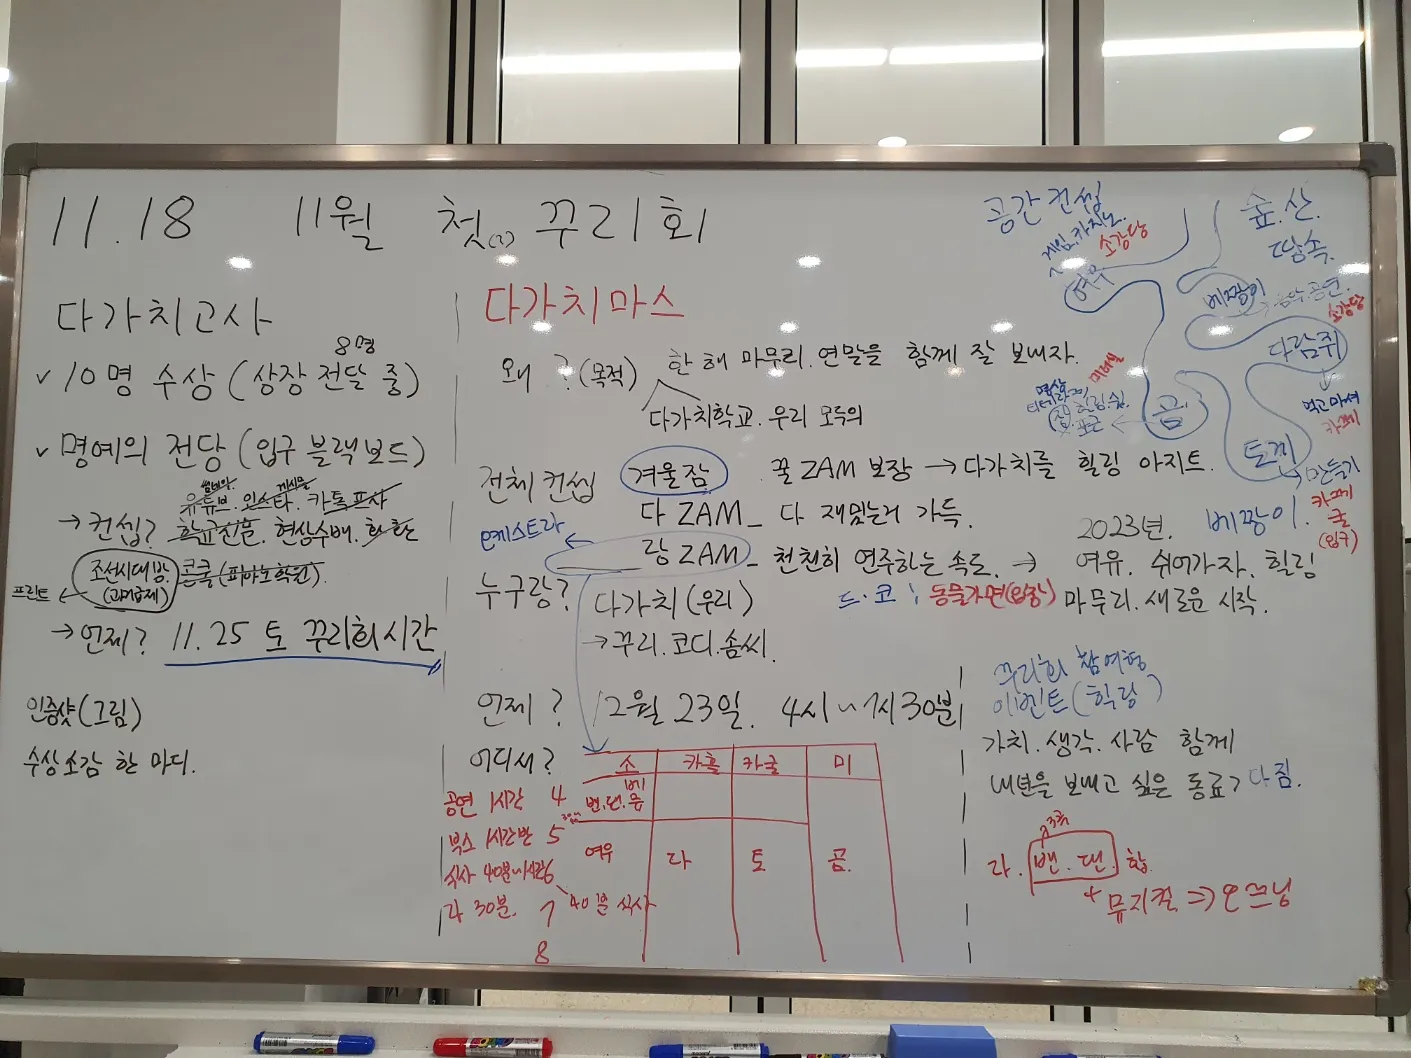 11.18 11월 첫 꾸리회
다가치고사
8명
✓ 10명 수상 (상장 전달 중)
✓ 명예의 전당 (입구 블랙보드)
썸네일. 게시물
유튜브. 인스타. 카톡프사
→ 컨셉? 학급신문. 현상수배. 화환
조선시대 방. 콩쿨 (피아노학원).
(과거급제)
프린트 ←
→ 언제? 11.25 토 꾸리회시간
인증샷 (그림)
수상소감 한 마디.
다가치마스
왜? (목적) 한 해 마무리. 연말을 함께 잘 보내자.
다가치학교. 우리 모두의
전체컨셉 겨울잠 꿀 ZAM 보장 → 다가치를 힐링 아지트.
다 ZAM_ 다 재밌는거 가득.
오케스트라 ← 랑 ZAM_ 천천히 연주하는 속도. →
2023년.
여유. 쉬어가자. 힐링
마무리. 새로운 시작.
누구랑? 다가치 (우리)
→ 꾸리. 코디. 솜씨.
드·코: 동물가면 (입장)
언제? 12월 23일. 4시 ~ 7시30분
어디서?
소 카홀 카굴 미
밴. 댄. 뮤 베
여유 다 토 곰.
공연 1시간 4
30분
부스 1시간반 5
식사 40분~1시간 6
라 30분. 7 40분 식사
8
공간 컨셉
게임. 카지노.
소강당
여우
숲. 산.
땅속.
베짱이 음악. 공연.
소강당
다람쥐
먹고 마셔
카페
영상
미디어실
힐링. 쉼.
곰
토끼
만들기
카페
굴
(입구)
베짱이.
꾸리회 참여형
이벤트 (힉링)
가치. 생각. 사람 함께
내년을 보내고 싶은 동료? 다짐.
2, 3곡
라. 밴. 댄. 합
+ 뮤지컬 ⇒ 오프닝